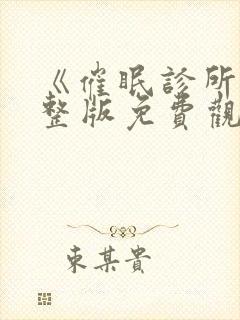 《催眠診所
整版免費觀
東某貴